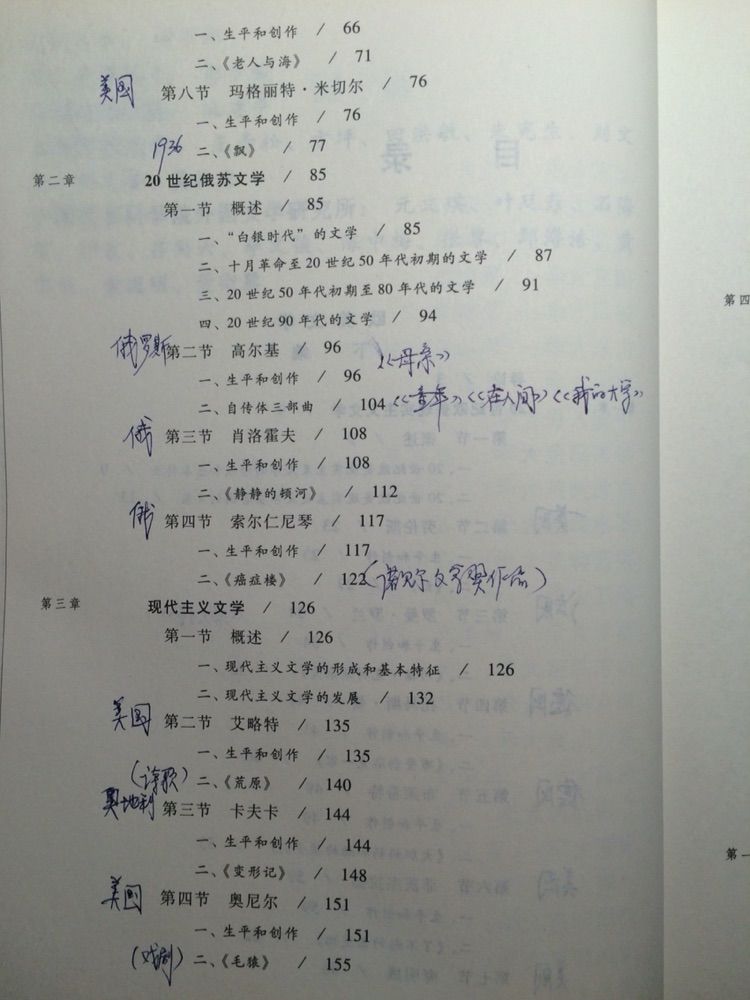 一、生平和创作 / 66
二、《老人与海》 / 71
美国 第八节 玛格丽特·米切尔 / 76
一、生平和创作 / 76
1936 二、《飘》 / 77
第二章 20世纪俄苏文学 / 85
第一节 概述 / 85
一、“白银时代”的文学 / 85
二、十月革命至20世纪50年代初期的文学 / 87
三、20世纪50年代初期至80年代的文学 / 91
四、20世纪90年代的文学 / 94
俄罗斯 第二节 高尔基 / 96 《母亲》
一、生平和创作 / 96
二、自传体三部曲 / 104 《童年》《在人间》《我的大学》
俄 第三节 肖洛霍夫 / 108
一、生平和创作 / 108
二、《静静的顿河》 / 112
俄 第四节 索尔仁尼琴 / 117
一、生平和创作 / 117
二、《癌症楼》 / 122 (诺贝尔文学奖作品)
第三章 现代主义文学 / 126
第一节 概述 / 126
一、现代主义文学的形成和基本特征 / 126
二、现代主义文学的发展 / 132
美国 第二节 艾略特 / 135
一、生平和创作 / 135
(诗歌) 二、《荒原》 / 140
奥地利 第三节 卡夫卡 / 144
一、生平和创作 / 144
二、《变形记》 / 148
美国 第四节 奥尼尔 / 151
一、生平和创作 / 151
(戏剧) 二、《毛猿》 / 155
第四
第一